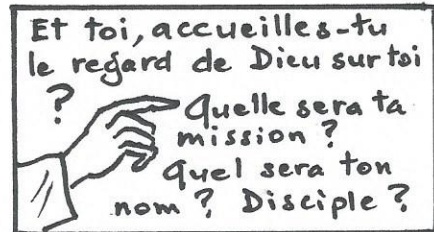 Et toi, accueilles-tu
le regard de Dieu sur toi
?
Quelle sera ta
mission ?
Quel sera ton
nom ? Disciple ?